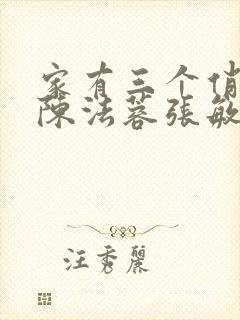 家有三个俏
陈法蓉张敏
汪秀丽